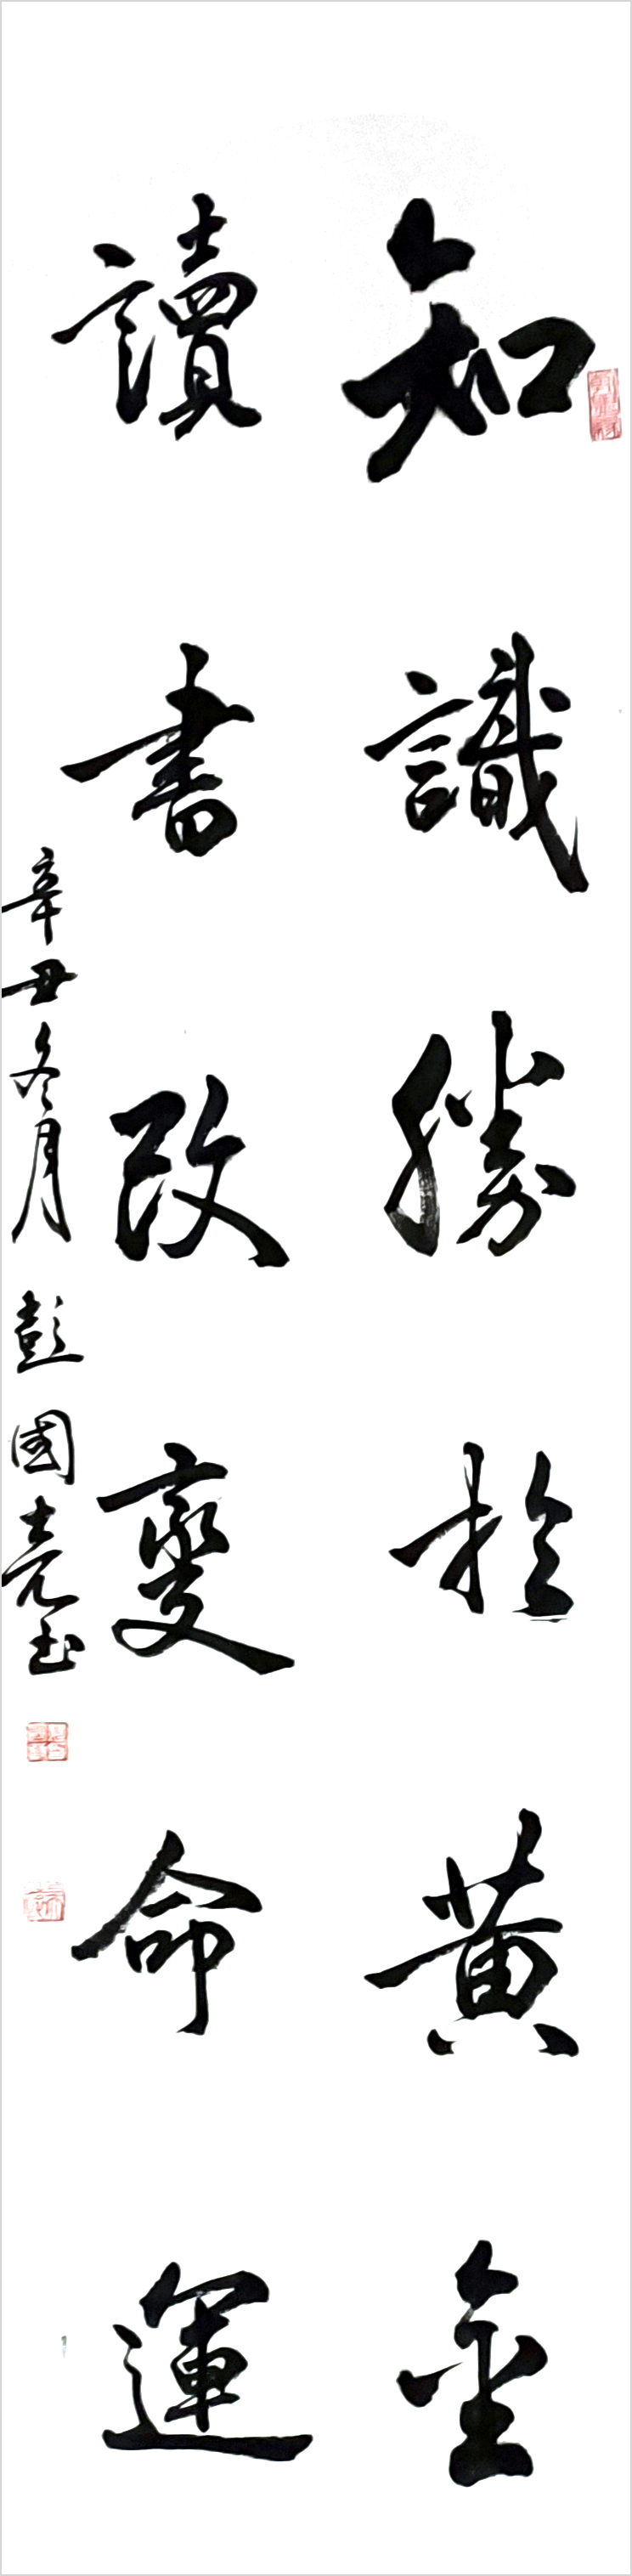 知識勝於黄金
讀書改變命運
辛丑冬月彭國亮玉